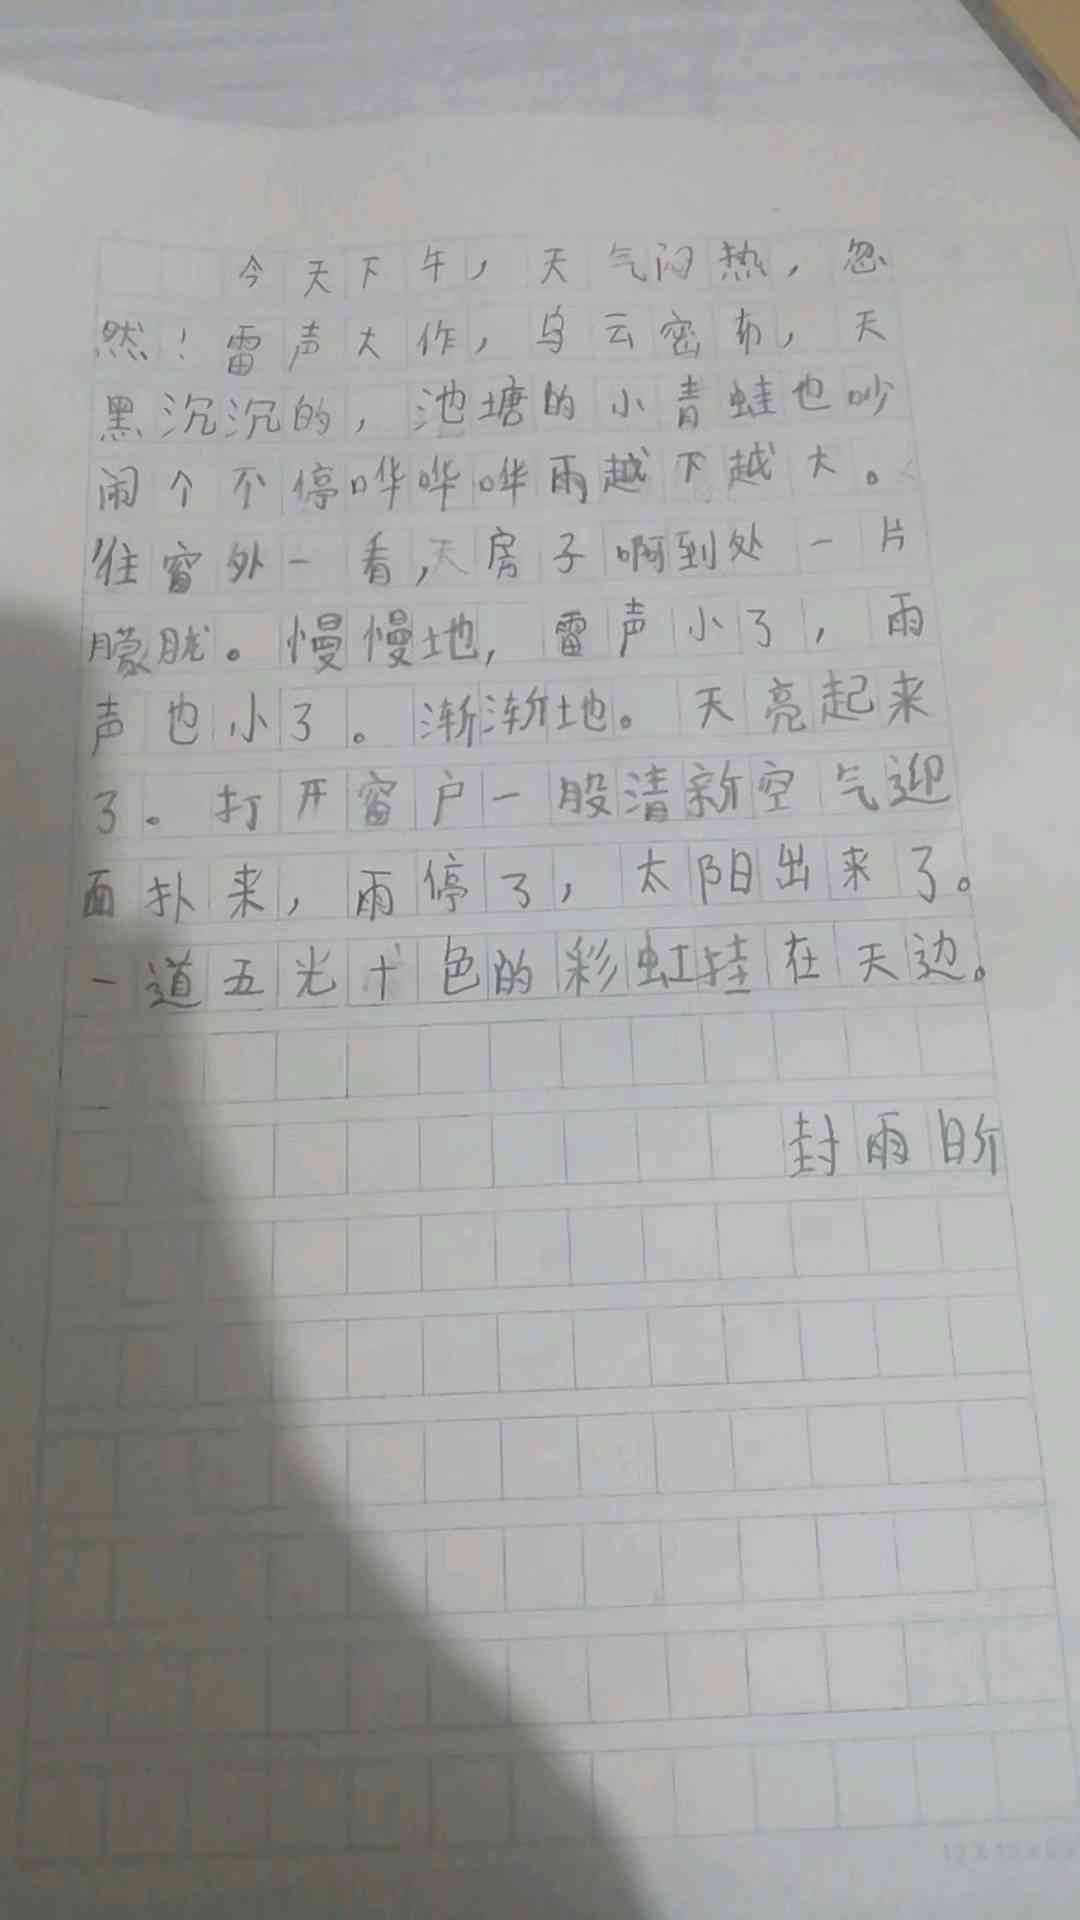 今天下午，天气闷热，忽
然！雷声大作，乌云密布，天
黑沉沉的，池塘的小青蛙也吵
闹个不停哗哗哗雨越下越大。
往窗外一看，天房子啊到处一片
朦胧。慢慢地，雷声小了，雨
声也小了。渐渐地。天亮起来
了。打开窗户一股清新空气迎
面扑来，雨停了，太阳出来了。
一道五光十色的彩虹挂在天边。
封雨昕